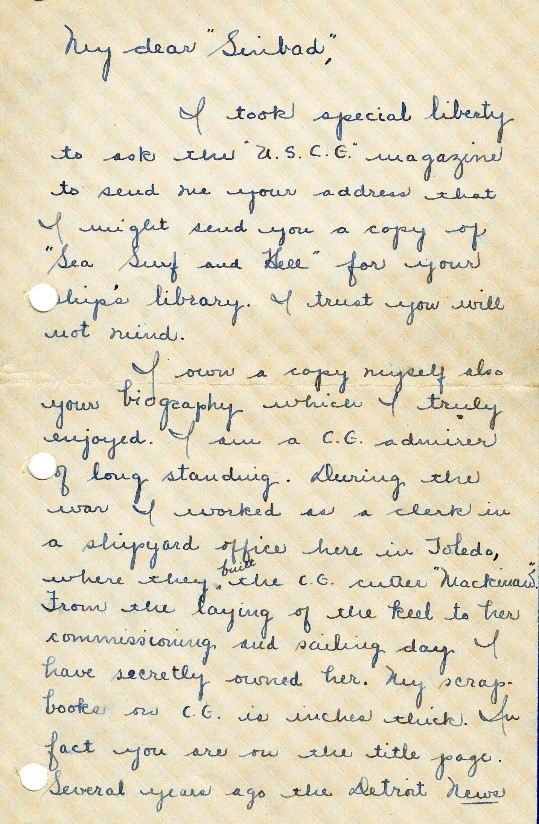 My dear "Sinbad",
I took special liberty
to ask the "U.S.C.G." magazine
to send me your address that
I might send you a copy of
"Sea Surf and Hell" for your
ship's library. I trust you will
not mind.
I own a copy myself also
your biography which I truly
enjoyed. I am a C.G. admirer
of long standing. During the
war I worked as a clerk in
a shipyard office here in Toledo,
where they built the C.G. cutter "Mackinaw".
From the laying of the keel to her
commissioning and sailing day I
have secretly owned her. My scrap-
books on C.G. is inches thick. In
fact you are on the title page.
Several years ago the Detroit News